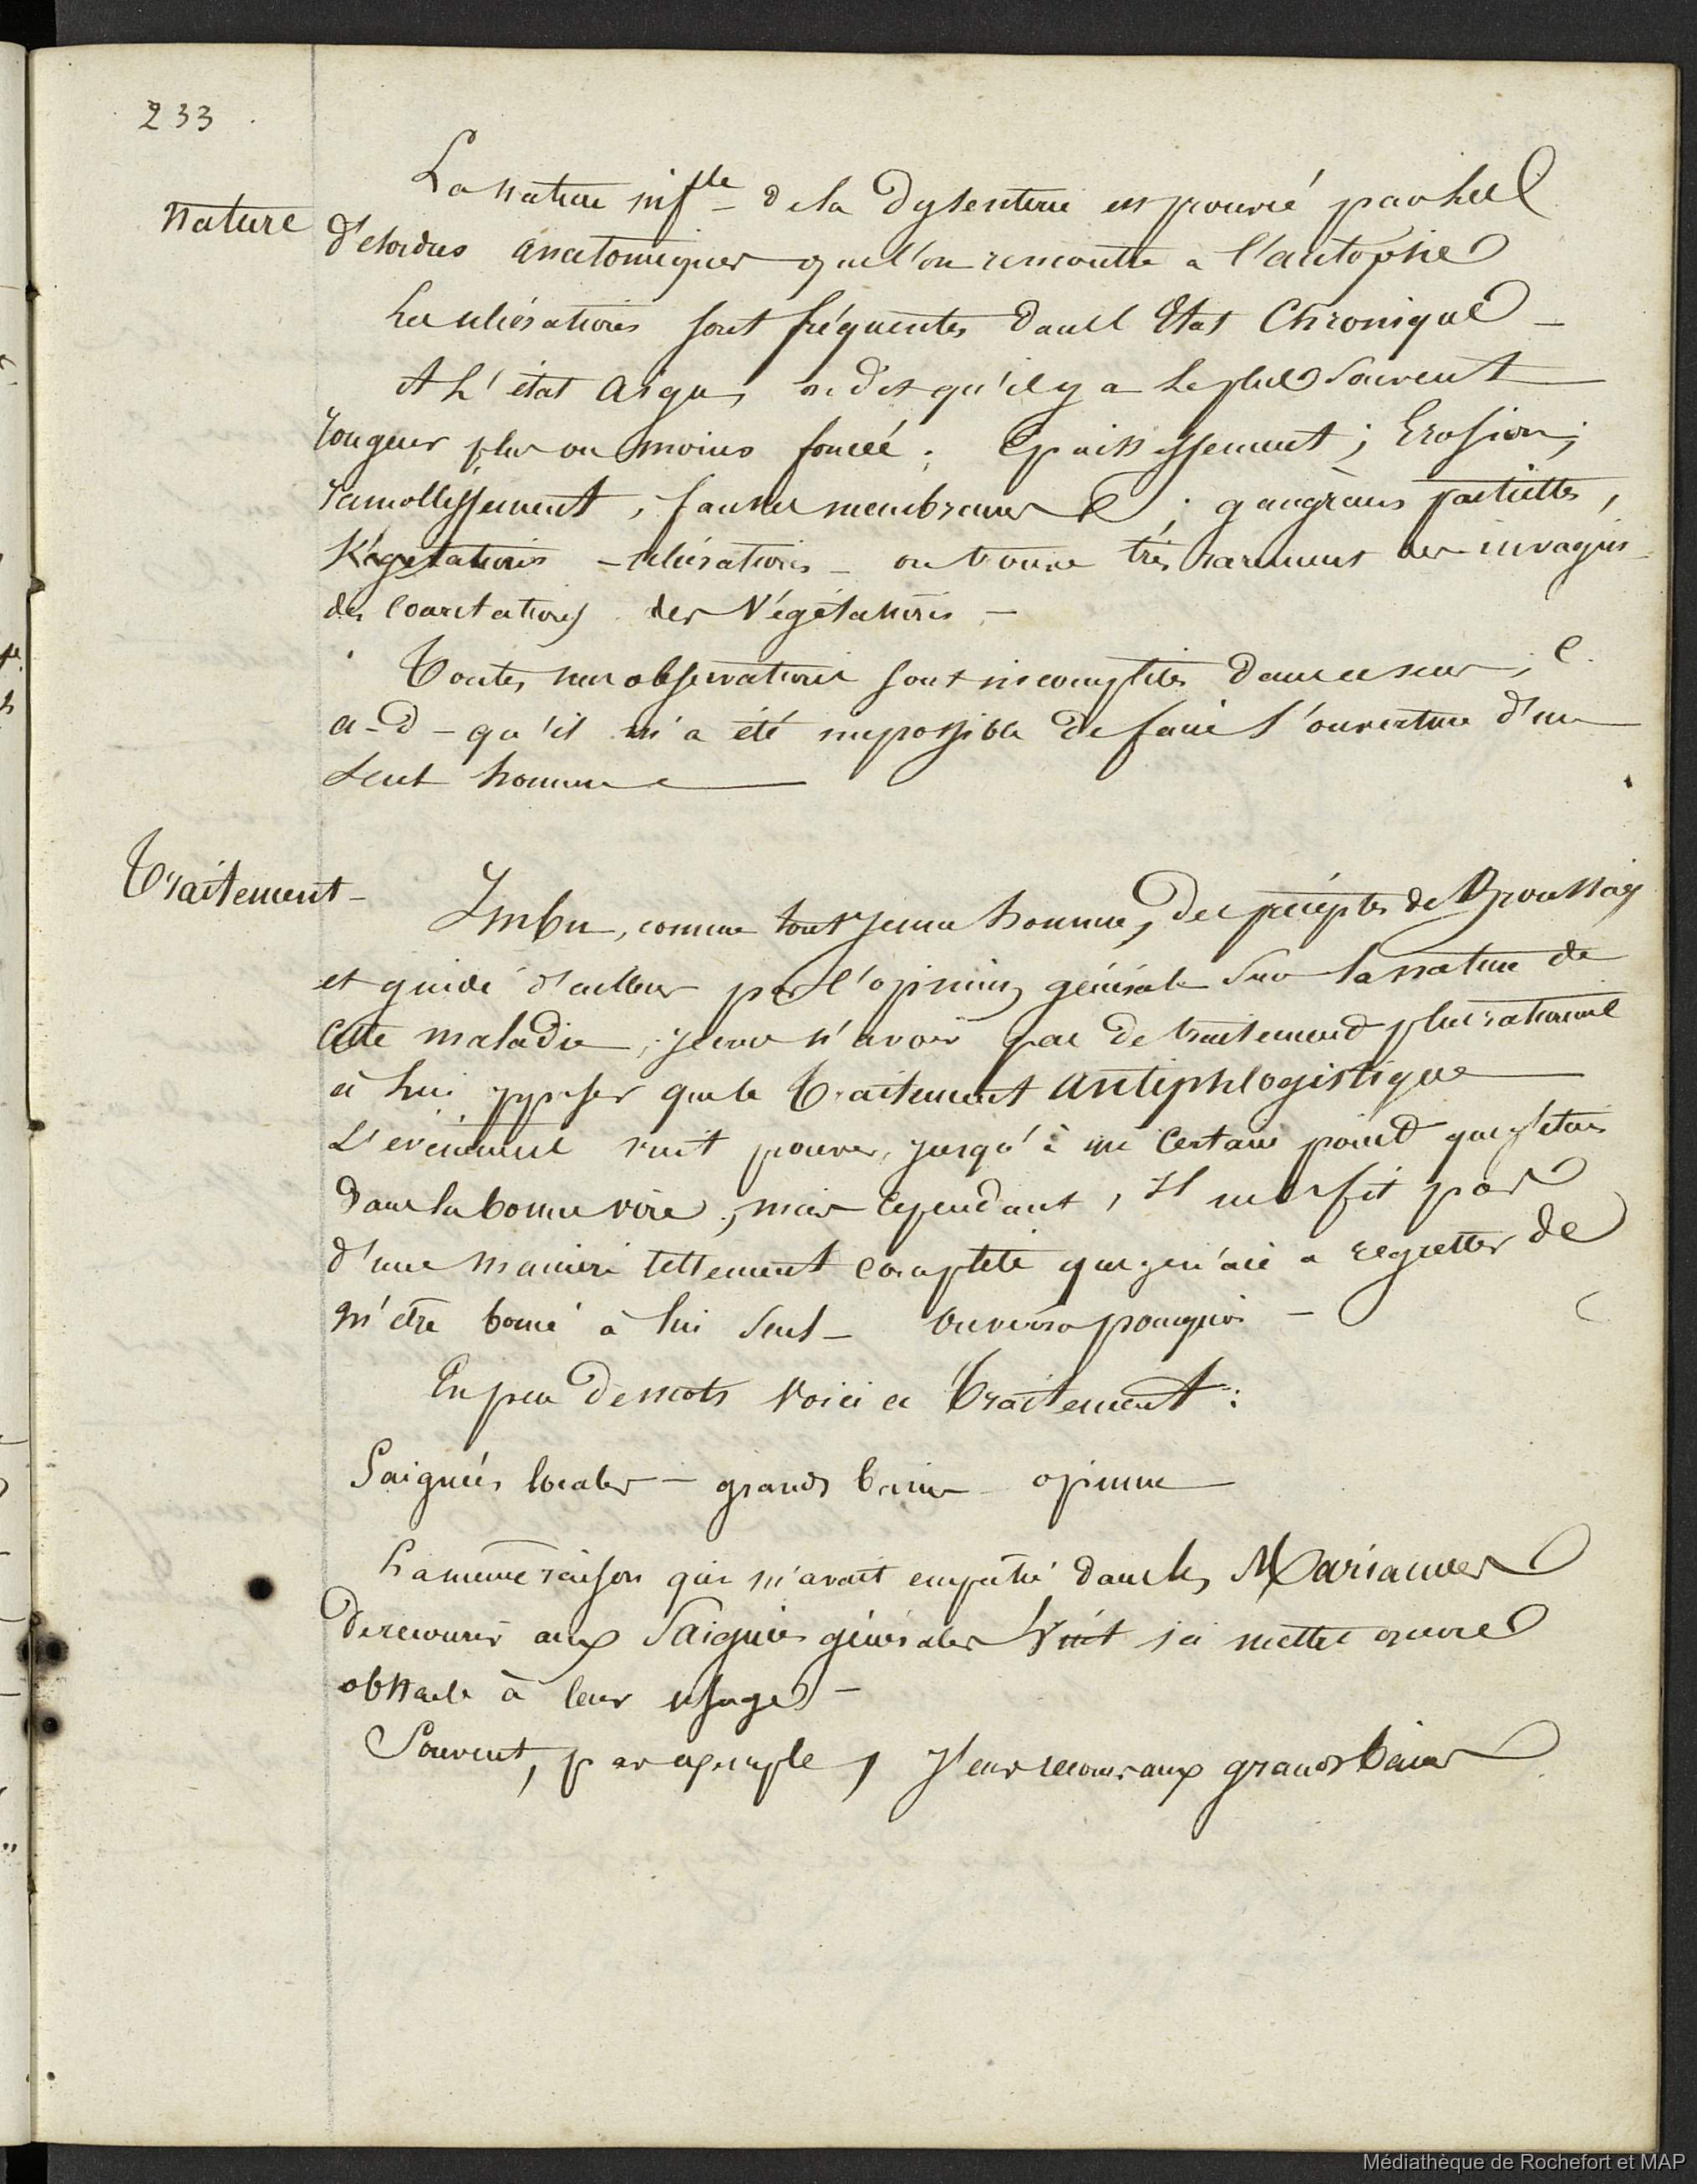 233
Nature
La nature infle de la Dysenterie est prouvé par les
désordres anatomiques que l'on rencontre a l'autopsie
Les ulcérations sont fréquentes dans l'Etat Chronique –
A L'état Aigu, on dit qu'il y a le plus Souvent
rougeur plus ou moins foncée ; Epaississement ; Erosion ;
ramollissement, fausses membranes & ; gangrènes partielles,
Végétations – ulcérations – on trouve très rarement des invagins
des Coarctations des Végétations –
Toutes mes observations sont incomplètes dans ce sens ; C.
a-D – qu'il m'a été impossible de faire l'ouverture d'un
seul homme
Traitement –
Imbu, comme tout jeune homme, des préceptes de Broussais
et guidé d'ailleurs par l'opinion générale Sur la nature de
Cette maladie, je crus n'avoir pas de traitement plus rationnel
à lui opposer que le Traitement antiphlogistique
L'événement vint prouver, jusqu'à un Certain point que j'étais
dans la bonne voie ; mais Cependant, Il ne le fit pas
d'une manière tellement complète que je n'aie a regretter de
m'être borné à lui Seul – On verra pourquoi –
En peu de mots Voici ce Traitement :
Saignées locales – grands bains – opium
La même raison qui m'avait empêché dans les Mariannes
De recourir aux Saignées générales Vint ici mettre encore
obstacle à leur usage –
Souvent, par exemple, J'eus recours aux grands bains
Médiathèque de Rochefort et MAP